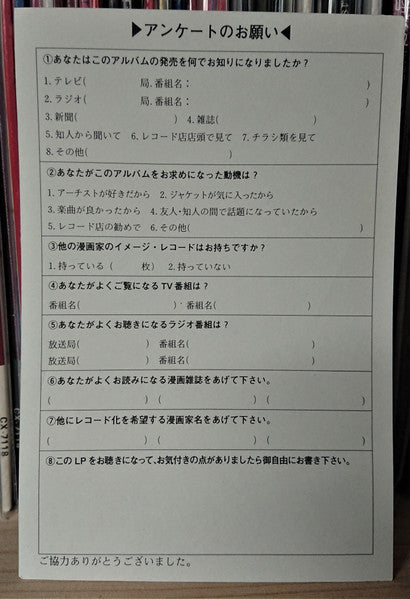 ▶アンケートのお願い◀
①あなたはこのアルバムの発売を何でお知りになりましたか?
1.テレビ( 局.番組名: )
2.ラジオ( 局.番組名: )
3.新聞( ) 4.雑誌( )
5.知人から聞いて 6.レコード店店頭で見て 7.チラシ類を見て
8.その他( )
②あなたがこのアルバムをお求めになった動機は?
1.アーチストが好きだから 2.ジャケットが気に入ったから
3.楽曲が良かったから 4.友人・知人の間で話題になっていたから
5.レコード店の勧めで 6.その他( )
③他の漫画家のイメージ・レコードはお持ちですか?
1.持っている( 枚) 2.持っていない
④あなたがよくご覧になるTV番組は?
番組名( )・番組名( )
⑤あなたがよくお聴きになるラジオ番組は?
放送局( ) 番組名( )
放送局( ) 番組名( )
⑥あなたがよくお読みになる漫画雑誌をあげて下さい。
( ) ( ) ( )
⑦他にレコード化を希望する漫画家名をあげて下さい。
( ) ( ) ( )
⑧このLPをお聴きになって、お気付きの点がありましたら御自由にお書き下さい。
ご協力ありがとうございました。
CX-7118
CX-7118